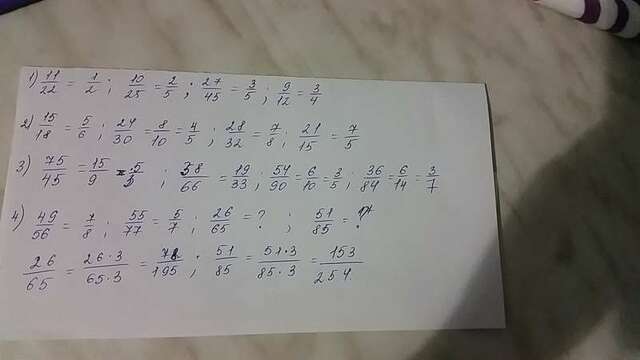 1) 11/22 = 1/2 ; 10/25 = 2/5 ; 27/45 = 3/5 ; 9/12 = 3/4
2) 15/18 = 5/6 ; 24/30 = 8/10 = 4/5 ; 28/32 = 7/8 ; 21/15 = 7/5
3) 75/45 = 15/9 = 5/3 ; 38/66 = 19/33 ; 54/90 = 6/10 = 3/5 ; 36/84 = 6/14 = 3/7
4) 49/56 = 7/8 ; 55/77 = 5/7 ; 26/65 = ? ; 51/85 = ?
26/65 = 26·3/65·3 = 78/195 ; 51/85 = 51·3/85·3 = 153/254